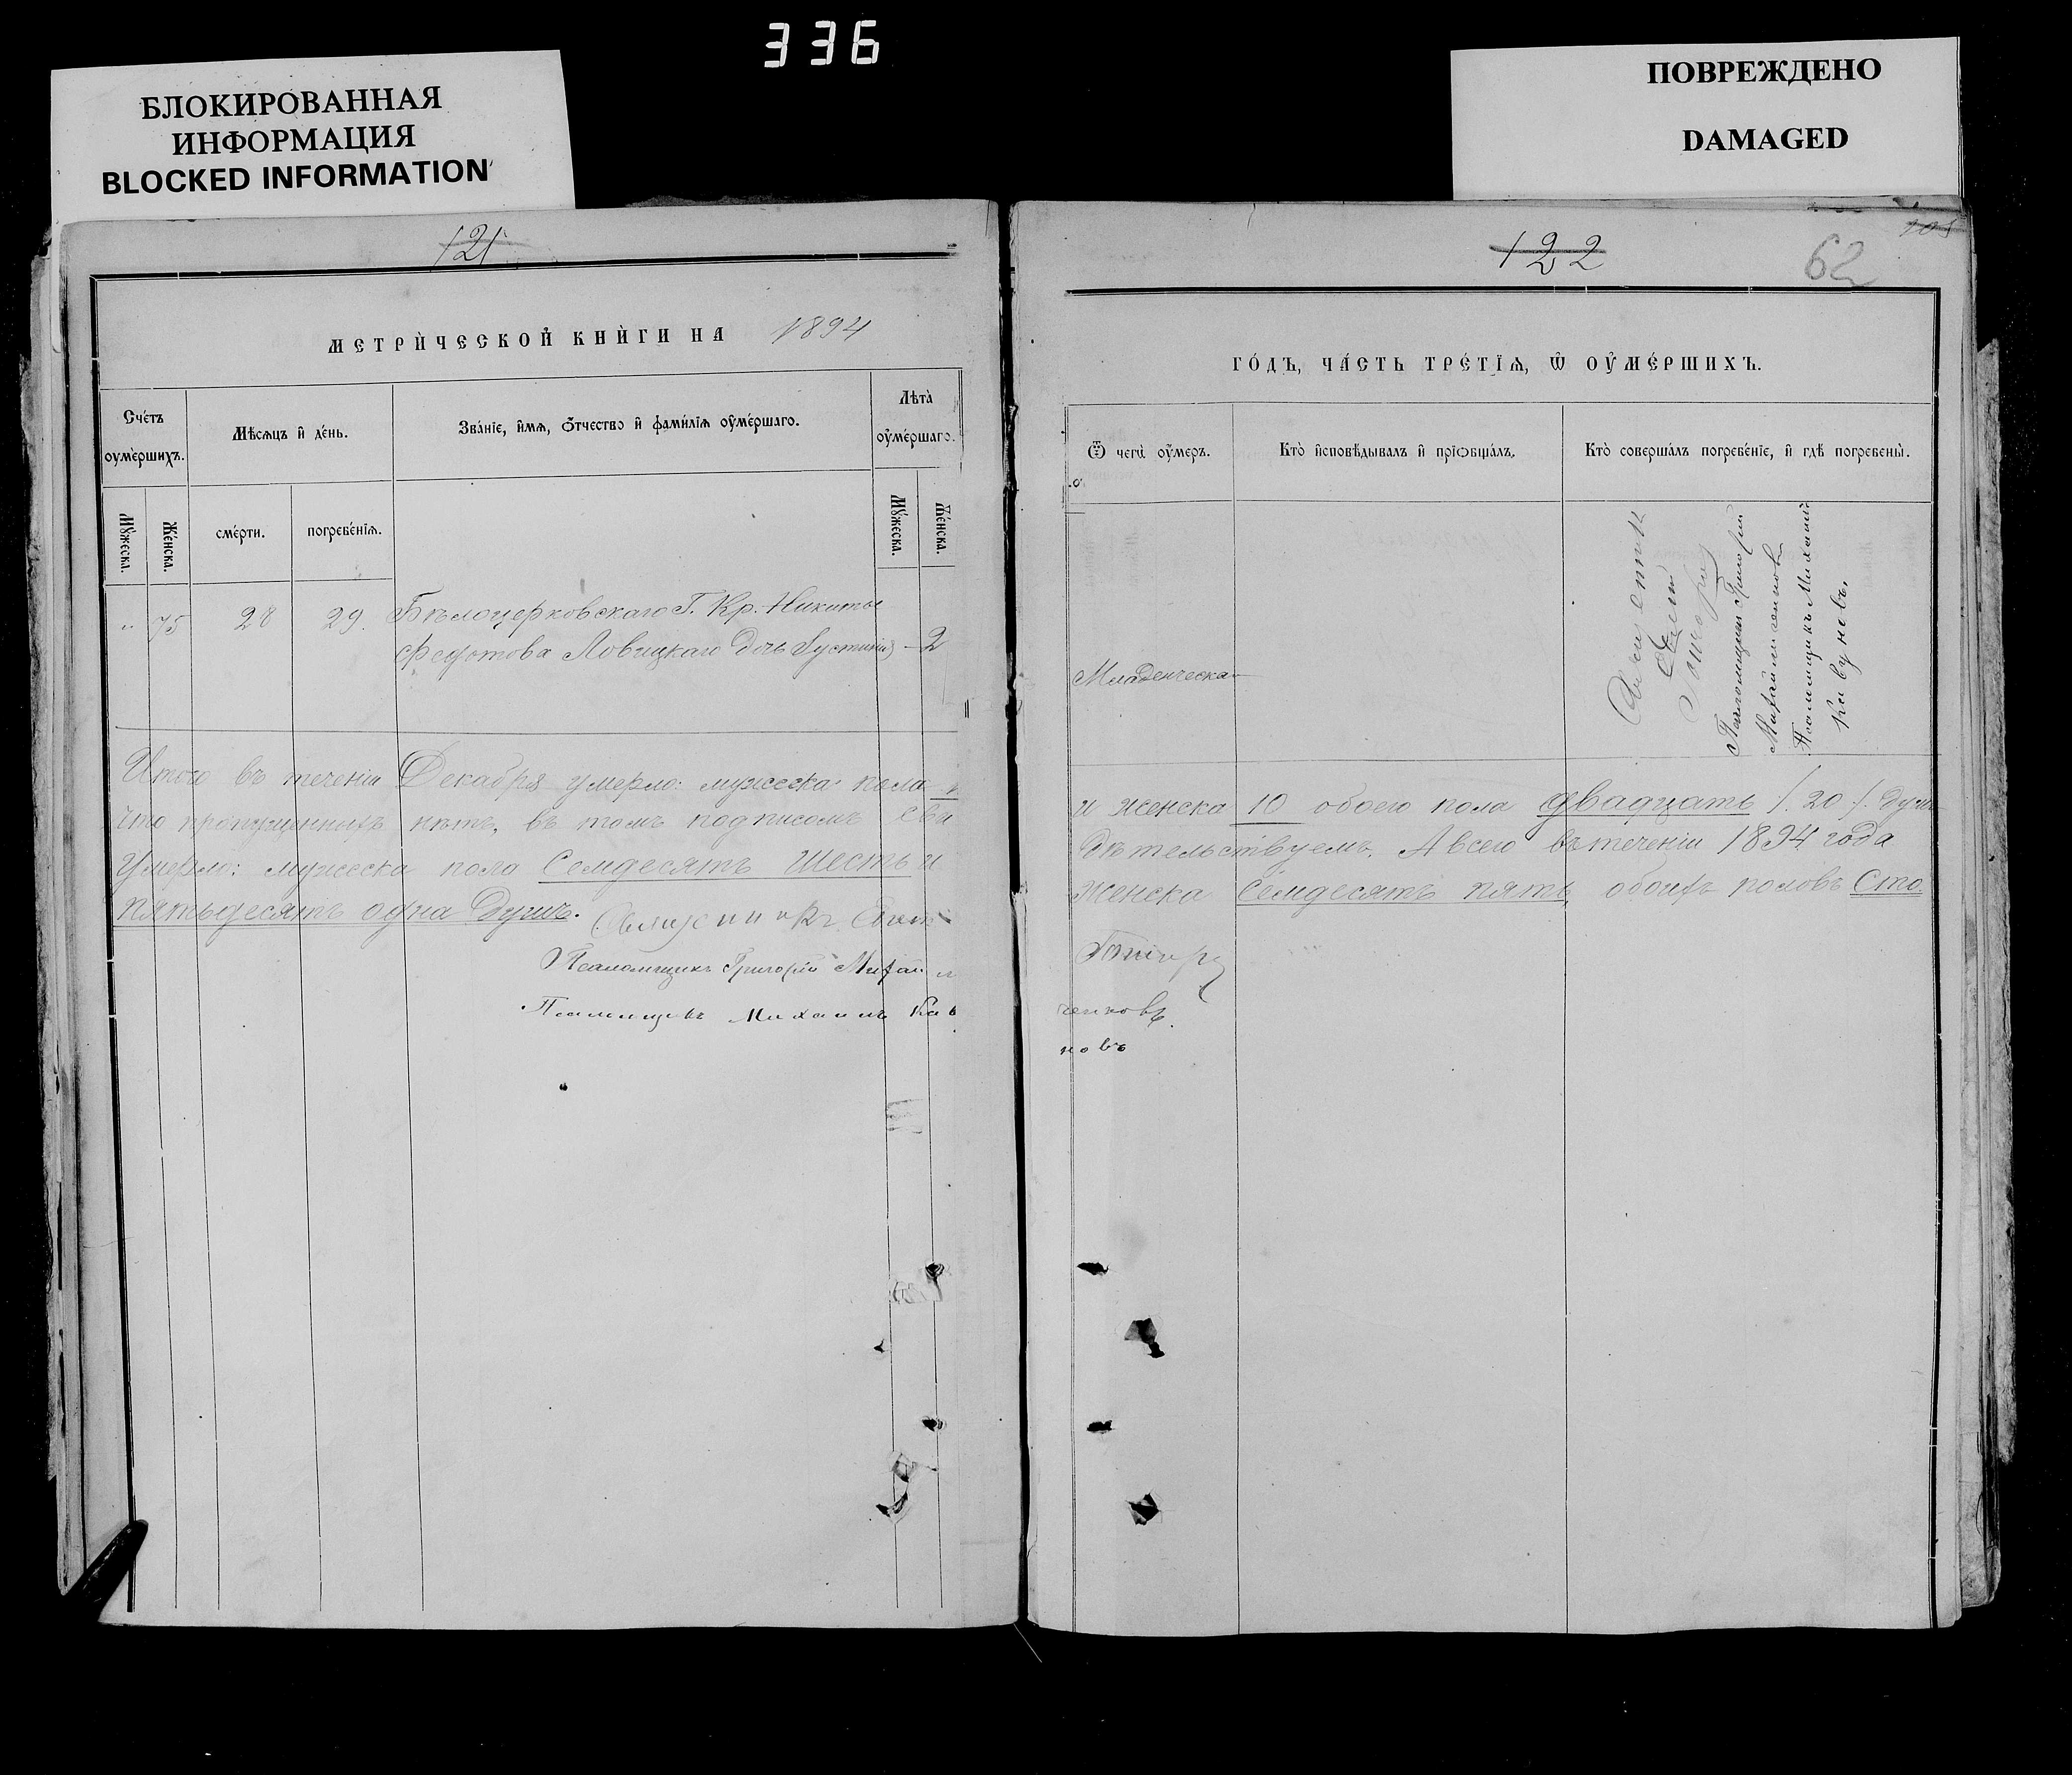 336
БЛОКИРОВАННАЯ
ИНФОРМАЦИЯ
BLOCKED INFORMATION
ПОВРЕЖДЕНО
DAMAGED
121
МЕТРИЧЕСКОЙ КНИГИ НА 1894
Счетъ
оумершихъ.
Мѣсяцъ и день.
Званіе, имя, отчество и фамилія оумершаго.
Лѣта
оумершаго.
Мужеска.
Женска.
смерти.
погребенія.
Мужеска.
Женска.
" 75 28 29. Бѣлоцерковскаго Г. Кр. Никиты
Федотова Ловицкаго дочь Іустинія – 2
Итого въ теченіи Декабря умерло: мужеска пола
что пропущенныхъ нѣтъ, въ томъ подписомъ сви
умерло: мужеска пола Семдесятъ Шесть и
пятьдесятъ одна душъ.
Псаломщикъ Григорій Михай
Псаломщикъ Михаилъ Кав
122
62
ГОДЪ, ЧАСТЬ ТРЕТІЯ, Ѡ ОУМЕРШИХЪ.
Ѿ чегѡ оумеръ.
Кто исповѣдывалъ и пріобщалъ.
Кто совершалъ погребеніе, и гдѣ погребены.
Младенческа
Псаломщикъ Григорій
Псаломщикъ Михаилъ
и женска 10 обоего пола двадцать /. 20 /. душъ
дѣтельствуемъ. А всего въ теченіи 1894 года
женска семдесятъ пять, обоихъ половъ Сто
ченковъ.
новъ